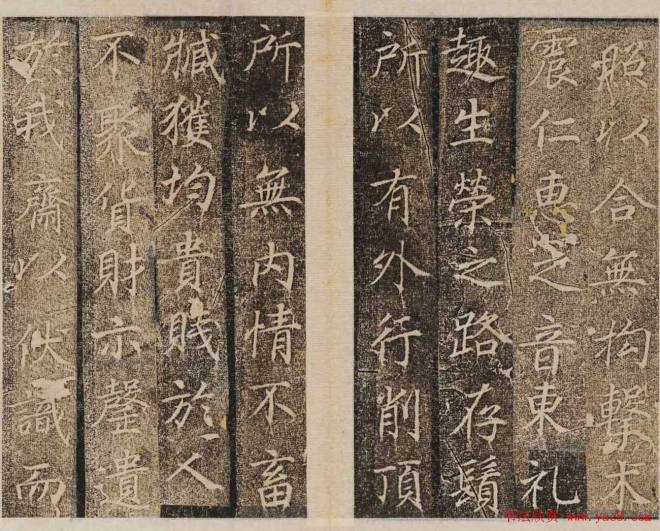 照以合無拘擊木
震仁惠之音東礼
趣生榮之路存鬚
所以有外行削頂
所以無内情不畜
臧獲均貴賤於人
不聚貨財示罄遺
於我齋以伏識而
书法欣赏 www.yac8.com